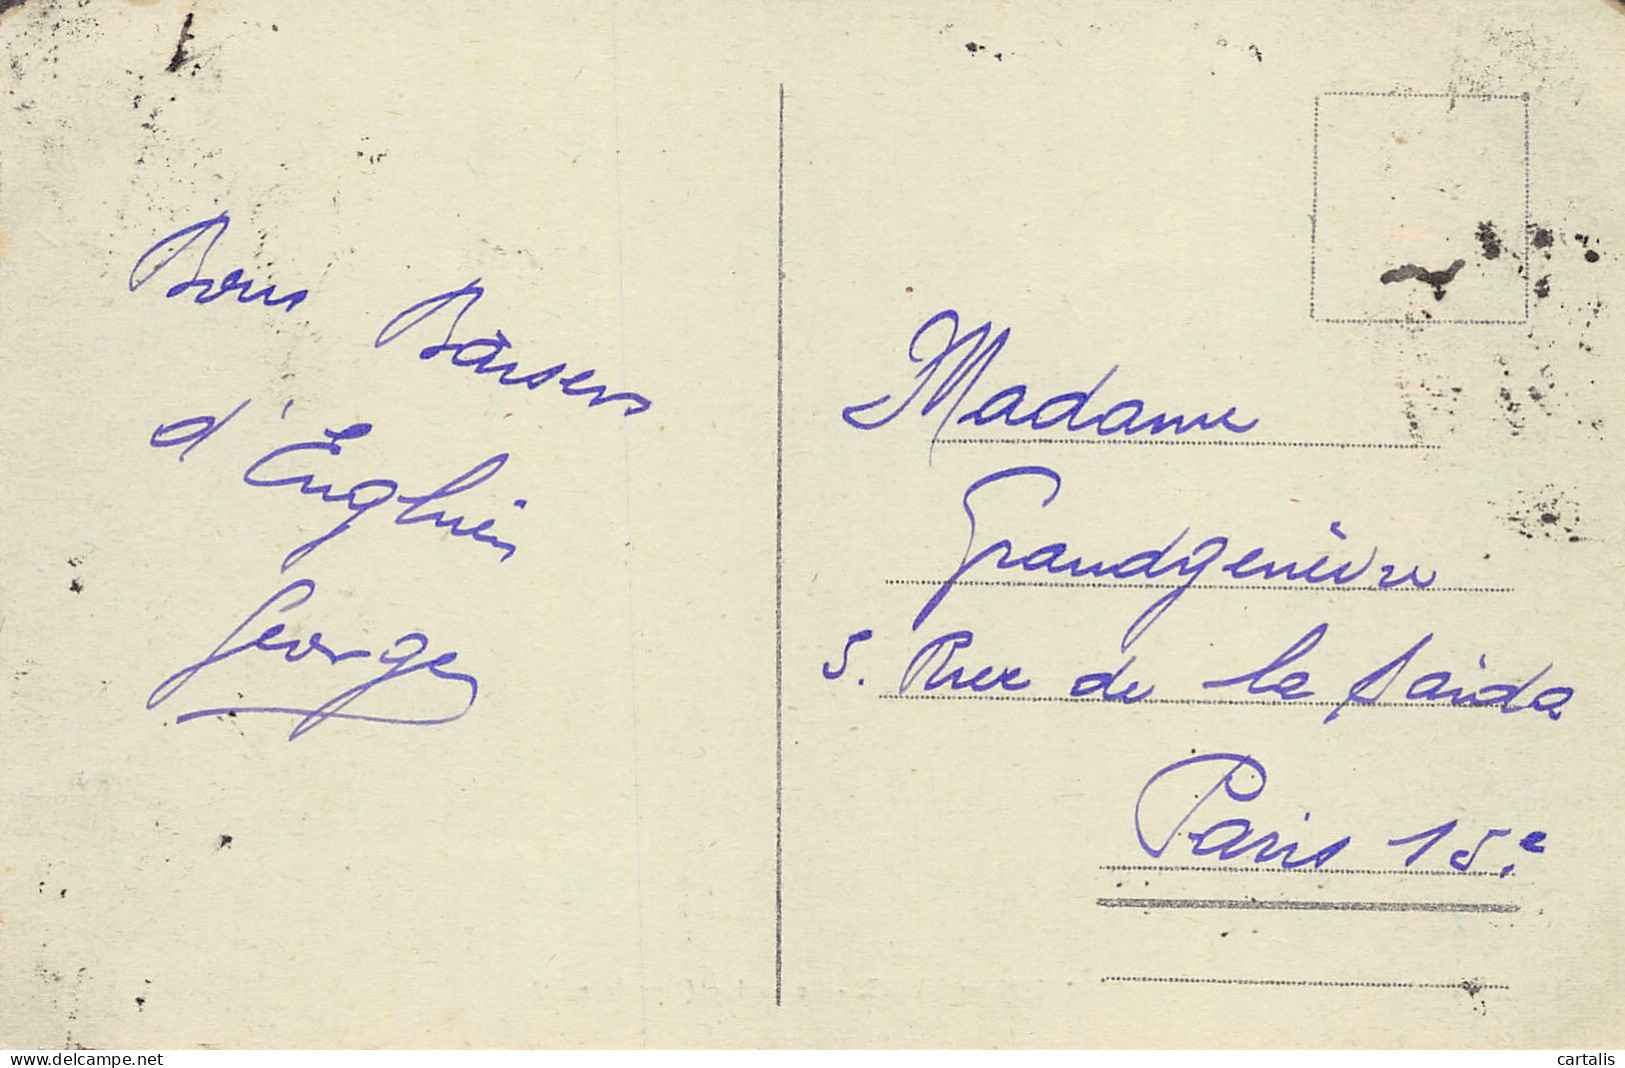 Bons Baisers
d'Enghien
Georges
Madame
Grandgenèvre
5. Rue de la Saïda
Paris 15.e
www.delcampe.net
cartalis